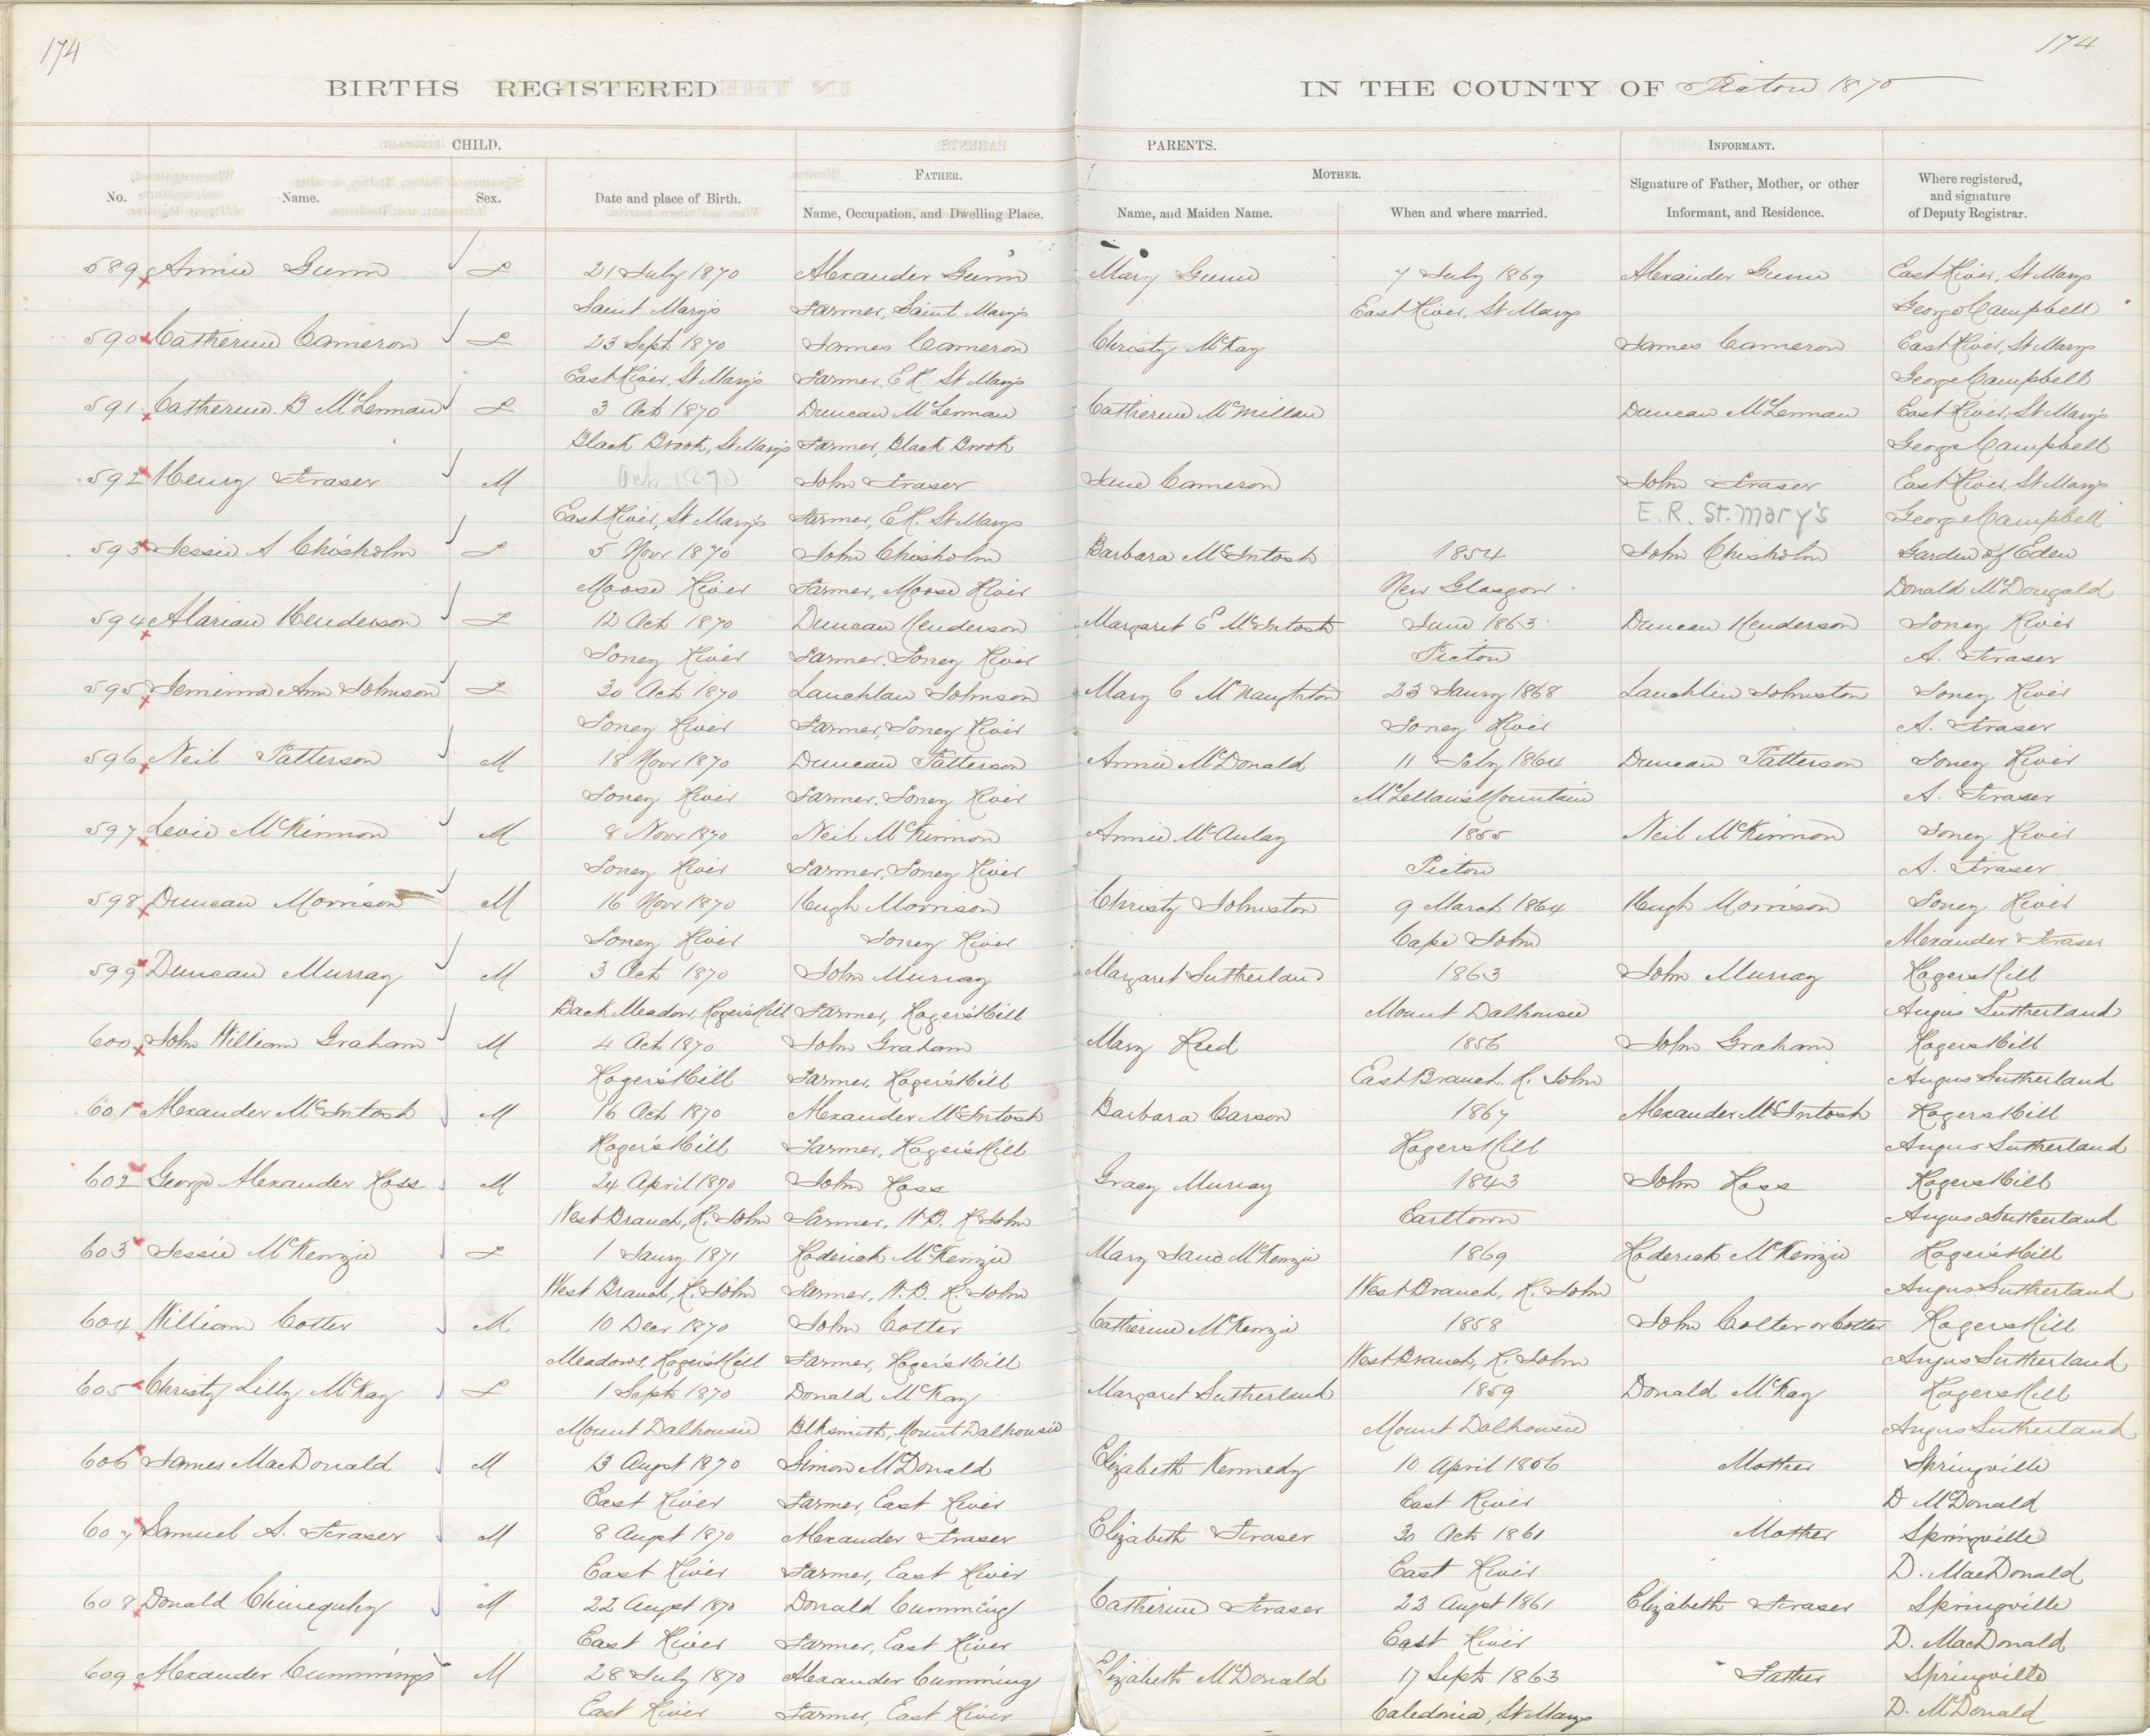 174
174
BIRTHS REGISTERED
IN THE COUNTY OF Pictou 1870
CHILD.
PARENTS.
INFORMANT.
FATHER.
MOTHER.
No.
Name.
Sex.
Date and place of Birth.
Name, Occupation, and Dwelling Place.
Name, and Maiden Name.
When and where married.
Signature of Father, Mother, or other
Informant, and Residence.
Where registered,
and signature
of Deputy Registrar.
589 Annie Gunn F 21 July 1870 Alexander Gunn Mary Gunn 7 July 1869 Alexander Gunn East River, St Marys
Saint Mary's Farmer, Saint Mary's East River, St Marys George Campbell
590 Catherine Cameron F 23 Sept 1870 James Cameron Christy McKay James Cameron East River, St Marys
East River, St Mary's Farmer, E.R. St Mary's George Campbell
591 Catherine B McLennan F 3 Oct 1870 Duncan McLennan Catherine McMillan Duncan McLennan East River, St Mary's
Black Brook, St Mary's Farmer, Black Brook George Campbell
592 Henry Fraser M Oct 1870 John Fraser Jane Cameron John Fraser East River, St Marys
East River, St Mary's Farmer, E.R. St Marys E.R. St. Mary's George Campbell
593 Jessie A Chisholm F 5 Novr 1870 John Chisholm Barbara McIntosh 1854 John Chisholm Garden of Eden
Moose River Farmer, Moose River New Glasgow Donald McDougald
594 Marian Henderson F 12 Oct 1870 Duncan Henderson Margaret E McIntosh June 1863 Duncan Henderson Toney River
Toney River Farmer, Toney River Pictou A. Fraser
595 Jemima Ann Johnson F 30 Oct 1870 Lauchlan Johnson Mary C McNaughton 23 Jany 1868 Lauchlin Johnston Toney River
Toney River Farmer, Toney River Toney River A. Fraser
596 Neil Patterson M 18 Novr 1870 Duncan Patterson Annie McDonald 11 July 1864 Duncan Patterson Toney River
Toney River Farmer, Toney River McLellan's Mountain A. Fraser
597 Levie McKinnon M 8 Novr 1870 Neil McKinnon Annie McAulay 1855 Neil McKinnon Toney River
Toney River Farmer, Toney River Pictou A. Fraser
598 Duncan Morrison M 16 Novr 1870 Hugh Morrison Christy Johnston 9 March 1864 Hugh Morrison Toney River
Toney River Toney River Cape John Alexander Fraser
599 Duncan Murray M 3 Oct 1870 John Murray Margaret Sutherland 1863 John Murray Rogers Hill
Back Meadow, Roger's Hill Farmer, Roger's Hill Mount Dalhousie Angus Sutherland
600 John William Graham M 4 Oct 1870 John Graham Mary Reid 1856 John Graham Rogers Hill
Roger's Hill Farmer, Roger's Hill East Branch R. John Angus Sutherland
601 Alexander McIntosh M 16 Oct 1870 Alexander McIntosh Barbara Carson 1867 Alexander McIntosh Rogers Hill
Roger's Hill Farmer, Roger's Hill Rogers Hill Angus Sutherland
602 George Alexander Ross M 24 April 1870 John Ross Gracy Murray 1843 John Ross Rogers Hill
West Branch, R. John Farmer, W.B. R John Earltown Angus Sutherland
603 Jessie McKenzie F 1 Jany 1871 Roderick McKenzie Mary Jane McKenzie 1869 Roderick McKenzie Roger's Hill
West Branch, R. John Farmer, W.B. R. John West Branch, R. John Angus Sutherland
604 William Cotter M 10 Decr 1870 John Cotter Catherine McKenzie 1858 John Colter or Cotter Rogers Hill
Meadows, Roger's Hill Farmer, Roger's Hill West Branch, R. John Angus Sutherland
605 Christy Lilly McKay F 1 Sept 1870 Donald McKay Margaret Sutherland 1859 Donald McKay Rogers Hill
Mount Dalhousie Blksmith, Mount Dalhousie Mount Dalhousie Angus Sutherland
606 James MacDonald M 13 Augst 1870 Simon McDonald Elizabeth Kennedy 10 April 1856 Mother Springville
East River Farmer, East River East River D McDonald
607 Samuel A. Fraser M 8 Augst 1870 Alexander Fraser Elizabeth Fraser 30 Oct 1861 Mother Springville
East River Farmer, East River East River D. MacDonald
608 Donald M 22 Augst 1870 Donald Cumming Catherine Fraser 23 Augst 1861 Elizabeth Fraser Springville
East River Farmer, East River East River D. MacDonald
609 Alexander Cummings M 28 July 1870 Alexander Cumming Elizabeth McDonald 17 Sept 1863 Father Springville
East River Farmer, East River Caledonia, St Marys D. McDonald